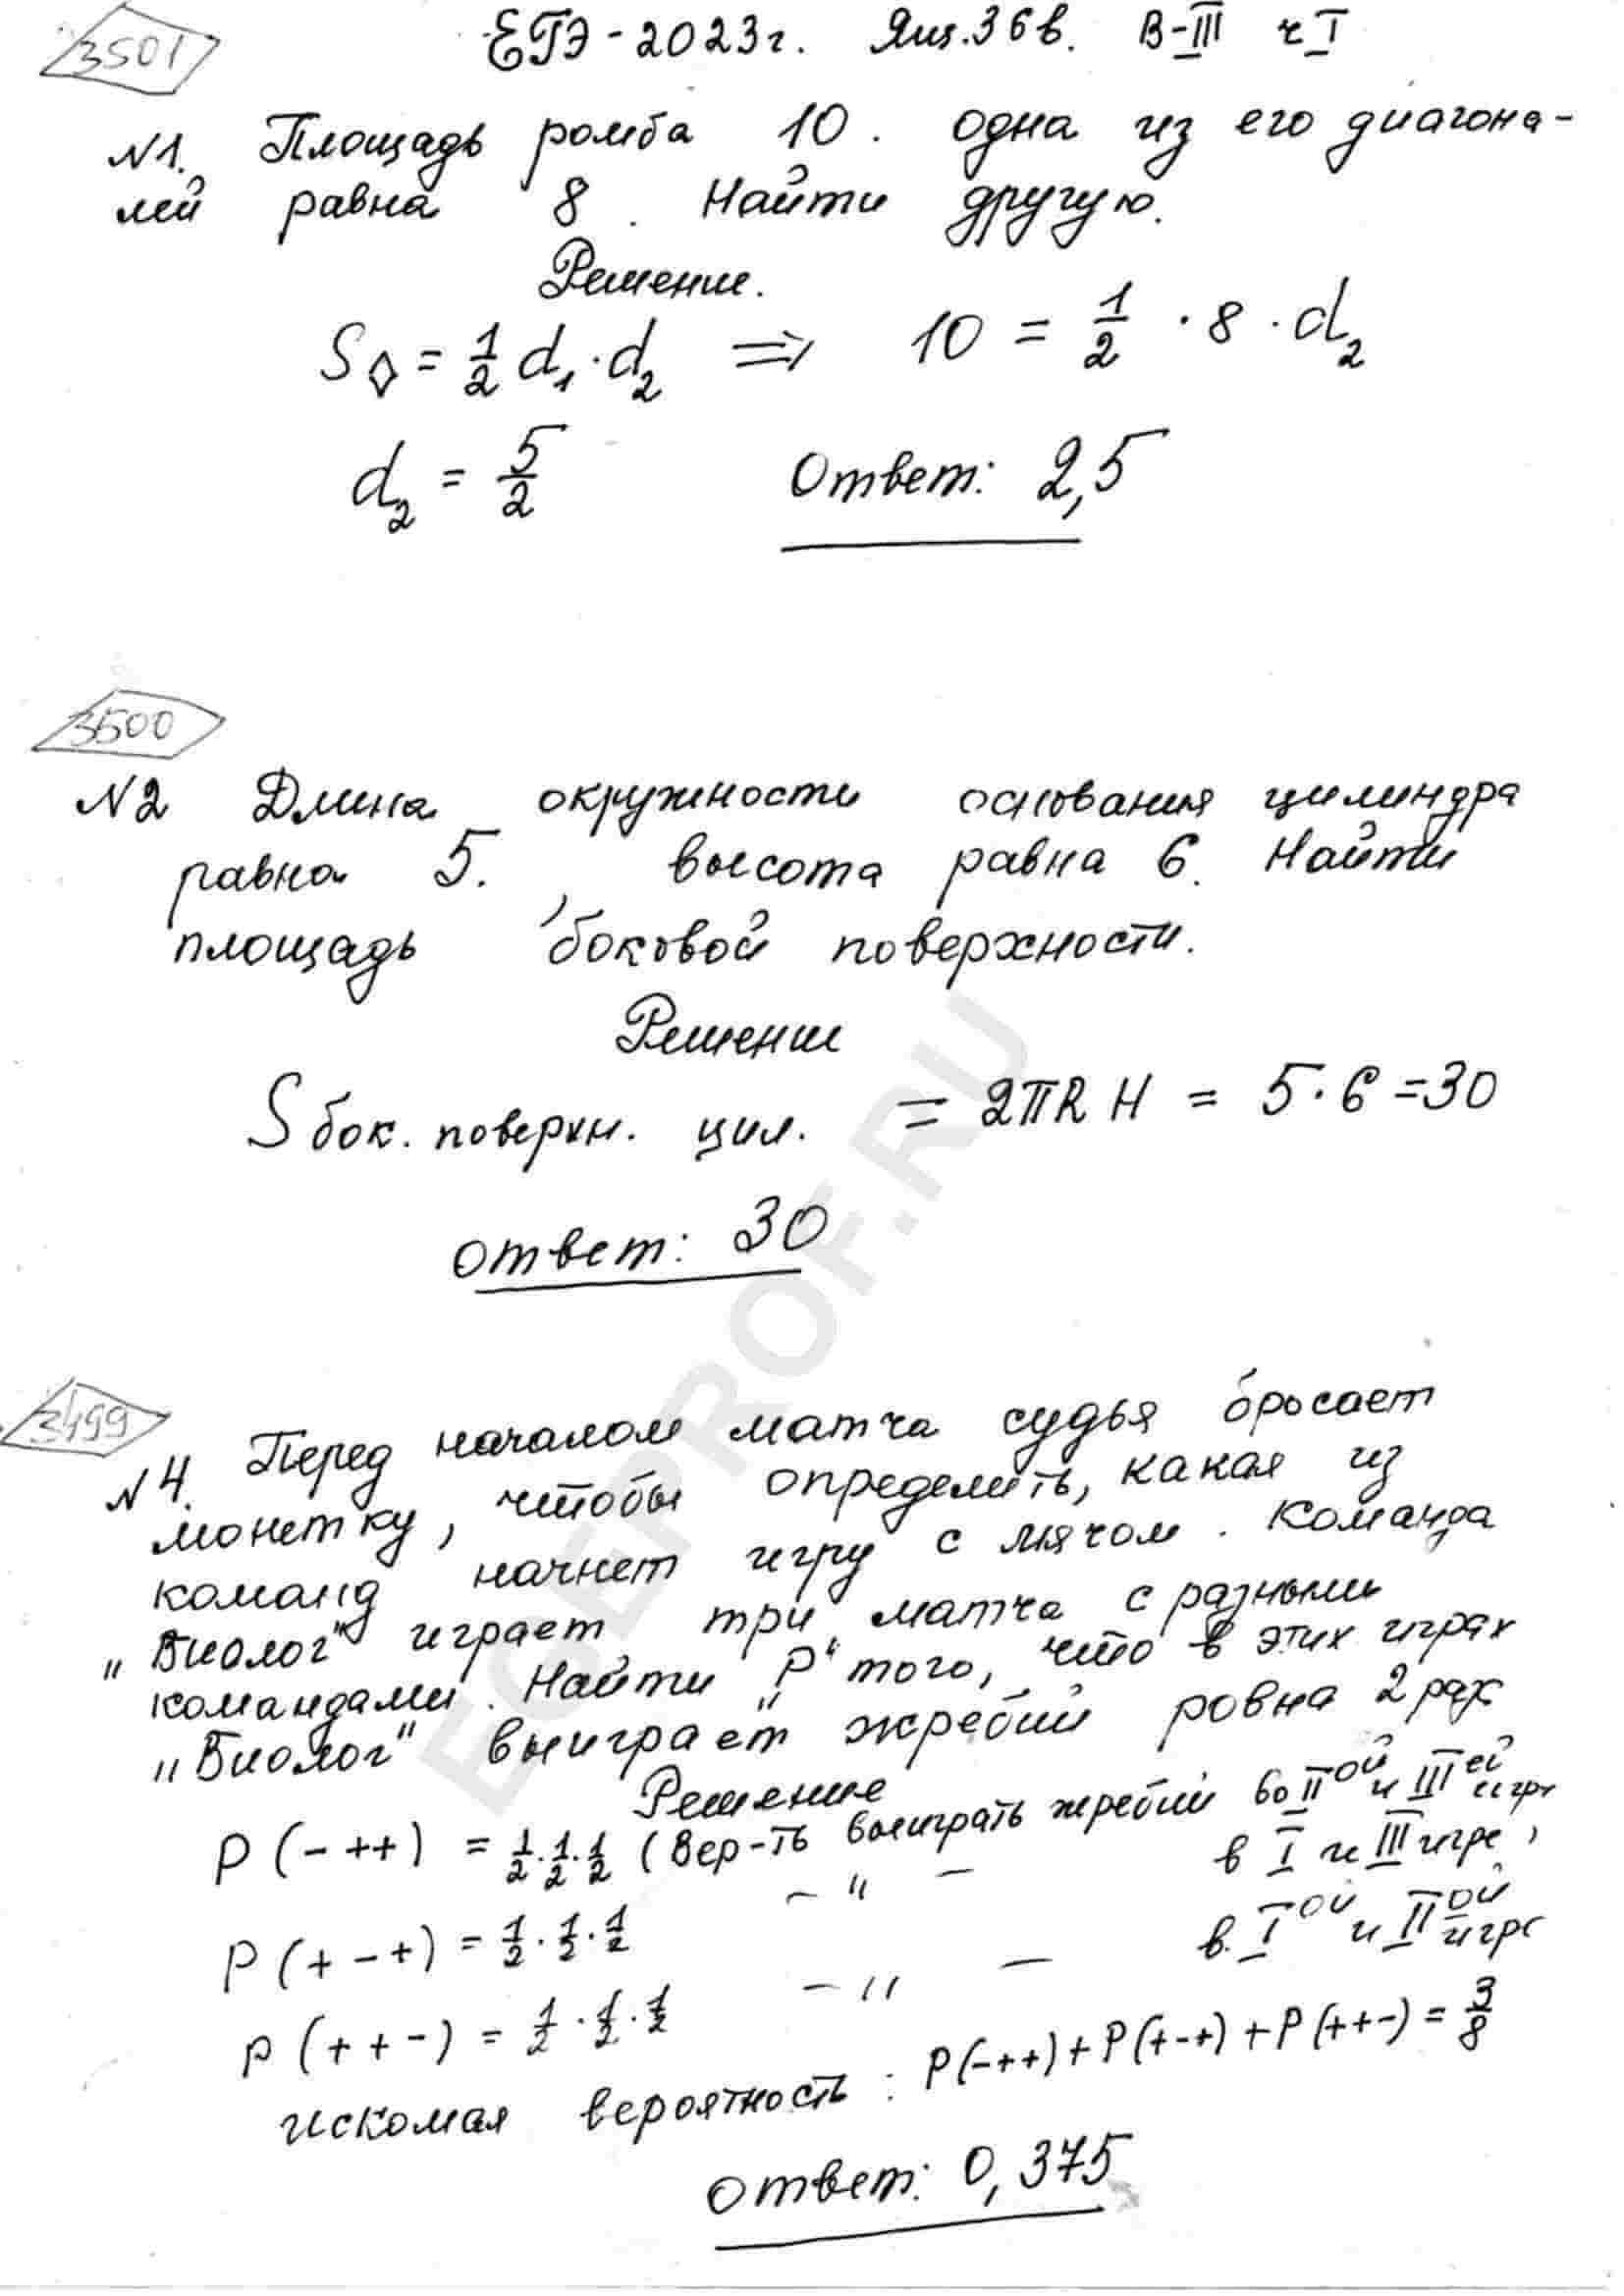 3501
ЕГЭ-2023г. Ящ.36в. В-III ч I
N1. Площадь ромба 10. одна из его диагона-
лей равна 8. Найти другую.
Решение.
S◊ = 1/2 d₁·d₂ => 10 = 1/2 · 8 · d₂
d₂ = 5/2 Ответ: 2,5
3500
N2 Длина окружности основания цилиндра
равна 5., высота равна 6. Найти
площадь боковой поверхности.
Решение
S бок. поверхн. цил. = 2πRH = 5·6=30
ответ: 30
3499
N4. Перед началом матча судья бросает
монетку, чтобы определить, какая из
команд начнет игру с мячом. Команда
"Биолог" играет три матча с разными
командами. Найти "P" того, что в этих играх
"Биолог" выиграет жребий ровна 2 раз
Решение
P(-++) = 1/2·1/2·1/2 (Вер-ть выиграть жребий во IIой и IIIей игре
-"- в I и III игре,
P(+-+) = 1/2·1/2·1/2
-"- в Iой и IIой игре
P(++-) = 1/2·1/2·1/2
искомая вероятность: P(-++)+P(+-+)+P(++-) = 3/8
ответ: 0,375
EGEPROF.RU